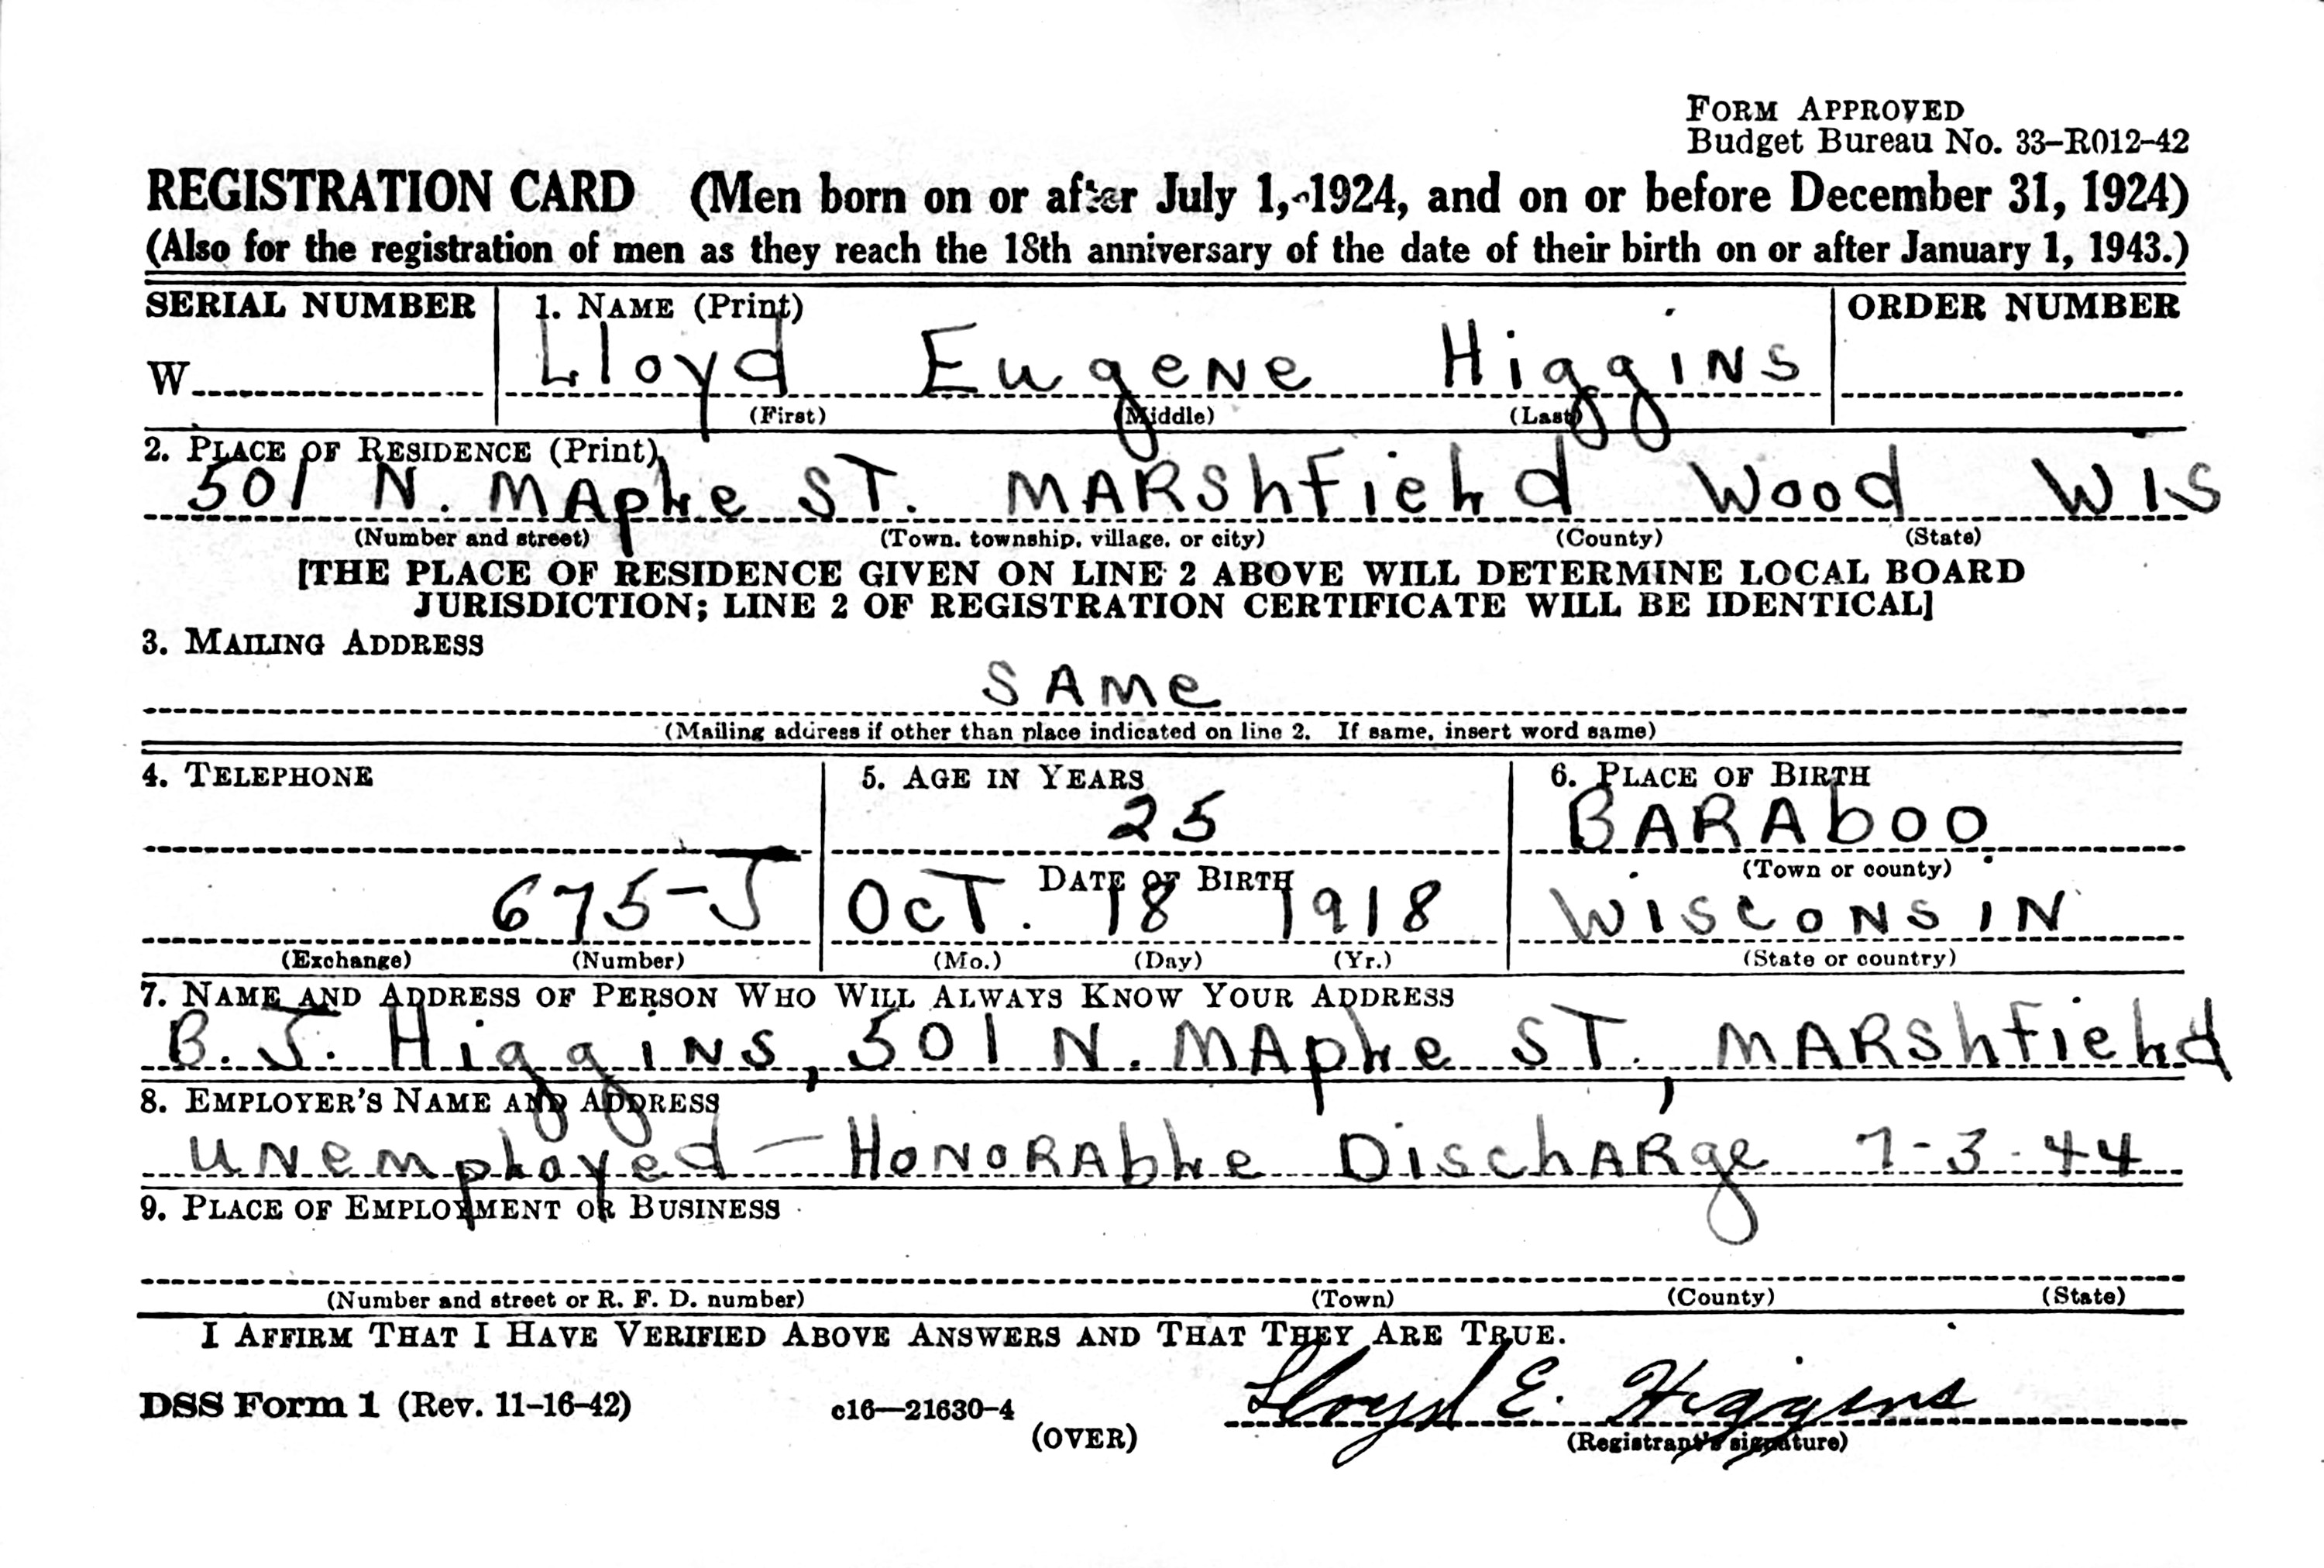 FORM APPROVED
Budget Bureau No. 33–R012–42
REGISTRATION CARD (Men born on or after July 1, 1924, and on or before December 31, 1924)
(Also for the registration of men as they reach the 18th anniversary of the date of their birth on or after January 1, 1943.)
SERIAL NUMBER 1. NAME (Print) ORDER NUMBER
W Lloyd Eugene Higgins
(First) (Middle) (Last)
2. PLACE OF RESIDENCE (Print)
501 N. MAple ST. MARShfield Wood Wis
(Number and street) (Town, township, village, or city) (County) (State)
[THE PLACE OF RESIDENCE GIVEN ON LINE 2 ABOVE WILL DETERMINE LOCAL BOARD
JURISDICTION; LINE 2 OF REGISTRATION CERTIFICATE WILL BE IDENTICAL]
3. MAILING ADDRESS
SAMe
(Mailing address if other than place indicated on line 2. If same, insert word same)
4. TELEPHONE 5. AGE IN YEARS 6. PLACE OF BIRTH
25 BARAboo
DATE OF BIRTH (Town or county)
675-J OcT. 18 1918 WISCONSIN
(Exchange) (Number) (Mo.) (Day) (Yr.) (State or country)
7. NAME AND ADDRESS OF PERSON WHO WILL ALWAYS KNOW YOUR ADDRESS
B. J. Higgins, 501 N. MAple ST., MARShfield
8. EMPLOYER'S NAME AND ADDRESS
UNemployed – HONORAble DischARge 7-3-44
9. PLACE OF EMPLOYMENT OR BUSINESS
(Number and street or R. F. D. number) (Town) (County) (State)
I AFFIRM THAT I HAVE VERIFIED ABOVE ANSWERS AND THAT THEY ARE TRUE.
Lloyd E. Higgins
DSS Form 1 (Rev. 11–16–42) c16—21630–4
(OVER) (Registrant's signature)